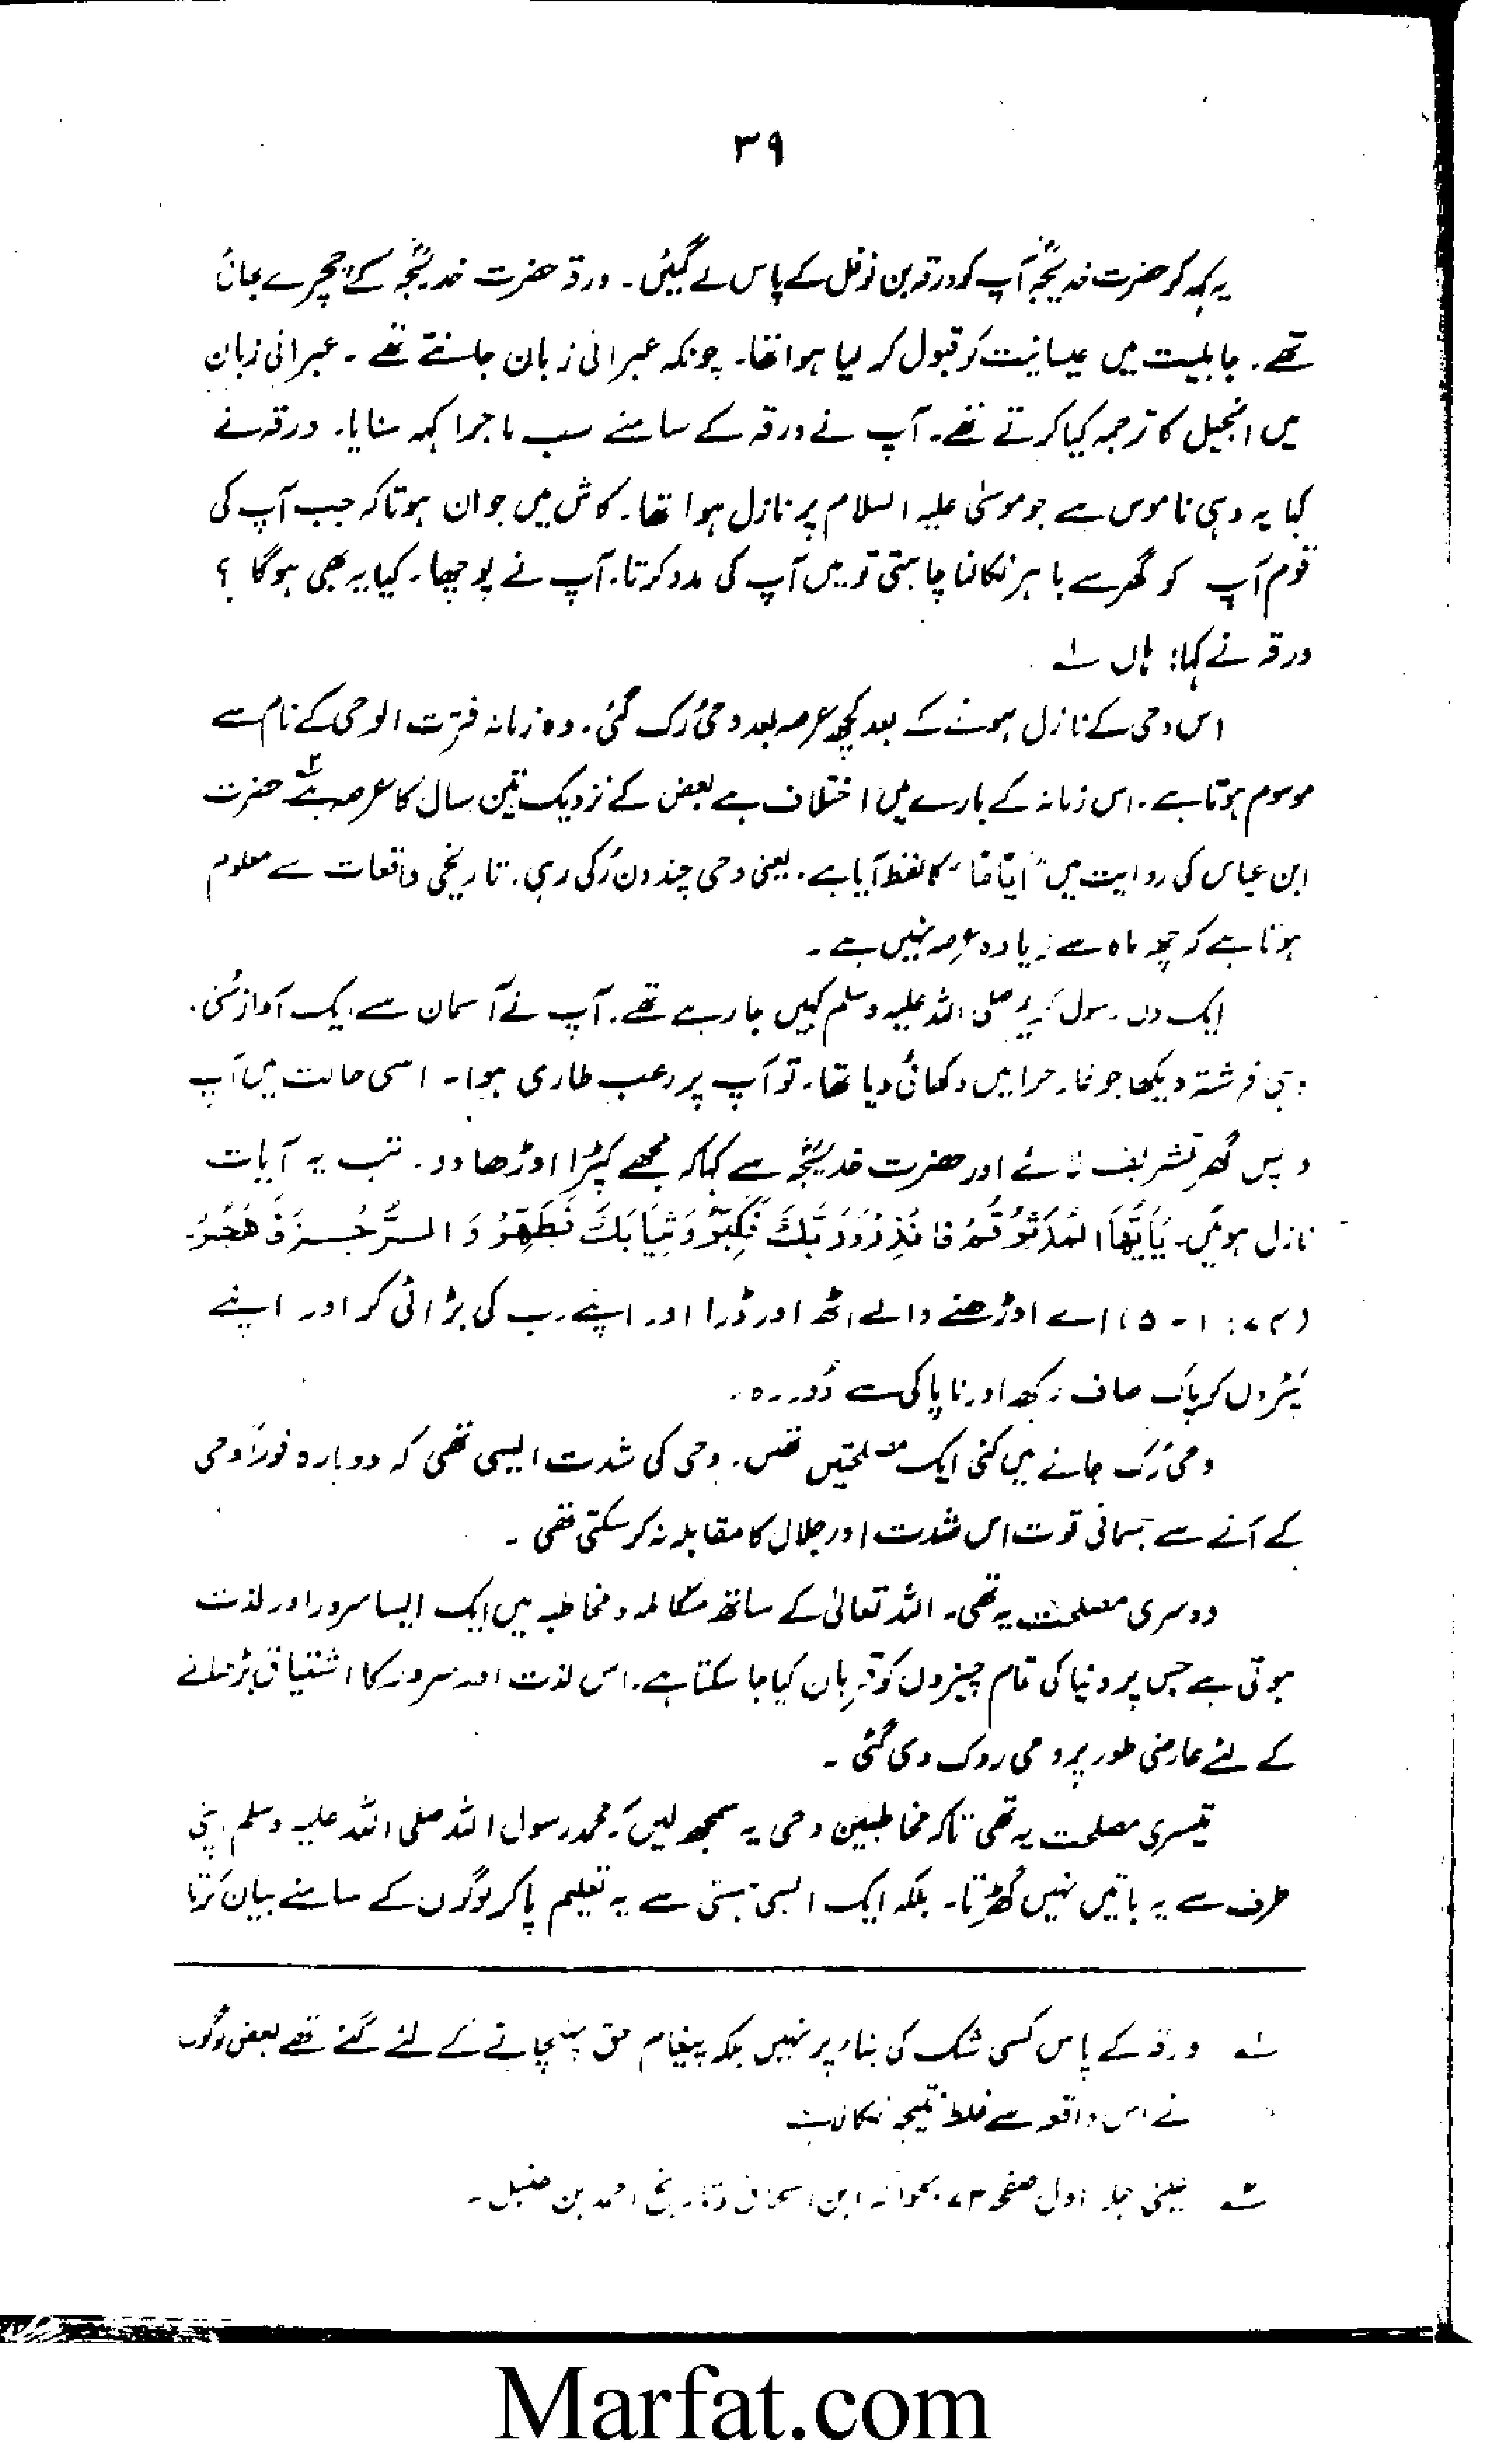 ۳۹
یہ کہہ کر حضرت خدیجہؓ آپ کو ورقہ بن نوفل کے پاس لے گئیں۔ ورقہ حضرت خدیجہؓ کے چچیرے بھائی
تھے۔ جاہلیت میں عیسائیت کو قبول کر لیا ہوا تھا۔ چونکہ عبرانی زبان جانتے تھے۔ عبرانی زبان
میں انجیل کا ترجمہ کیا کرتے تھے۔ آپ نے ورقہ کے سامنے سب ماجرا کہہ سنایا۔ ورقہ نے
کہا یہ وہی ناموس ہے جو موسیٰ علیہ السلام پر نازل ہوا تھا۔ کاش میں جوان ہوتا کہ جب آپ کی
قوم آپ کو گھر سے باہر نکالنا چاہتی تو میں آپ کی مدد کرتا۔ آپ نے پوچھا۔ کیا یہ بھی ہوگا ؟
ورقہ نے کہا: ہاں ۱؎
اس وحی کے نازل ہونے کے بعد کچھ عرصہ بعد وحی رُک گئی۔ وہ زمانہ فترت الوحی کے نام سے
موسوم ہوتا ہے۔ اس زمانہ کے بارے میں اختلاف ہے بعض کے نزدیک تین سال کا عرصہ ہے ۲؎ حضرت
ابن عباس کی روایت میں "ایّامًا" کا لفظ آیا ہے۔ یعنی وحی چند دن رُکی رہی۔ تاریخی واقعات سے معلوم
ہوتا ہے کہ چھ ماہ سے زیادہ عرصہ نہیں ہے۔
ایک دن رسول کریم صلی اللہ علیہ وسلم کہیں جا رہے تھے۔ آپ نے آسمان سے ایک آواز سُنی۔
وہی فرشتہ دیکھا جو غار حرا میں دکھائی دیا تھا۔ تو آپ پر رعب طاری ہوا۔ اسی حالت میں آپ
واپس گھر تشریف لائے اور حضرت خدیجہؓ سے کہا کہ مجھے کپڑا اوڑھا دو۔ تب یہ آیات
نازل ہوئیں۔ یَاَیُّهَا الْمُدَّثِّرُ قُمْ فَاَنْذِرْ وَرَبَّكَ فَكَبِّرْ وَثِیَابَكَ فَطَهِّرْ وَالرُّجْزَ فَاهْجُرْ
(۷۴: ۱ - ۵) اے اوڑھنے والے اٹھ اور ڈرا اور اپنے رب کی بڑائی کر اور اپنے
کپڑوں کو پاک صاف رکھ اور ناپاکی سے دُور رہ۔
وحی رُک جانے میں کئی ایک مصلحتیں تھیں۔ وحی کی شدت ایسی تھی کہ دوبارہ فوراً وحی
کے آنے سے جسمانی قوت اس شدت اور جلال کا مقابلہ نہ کر سکتی تھی۔
دوسری مصلحت یہ تھی۔ اللہ تعالیٰ کے ساتھ مکالمہ و مخاطبہ میں ایک ایسا سرور اور لذت
ہوتی ہے جس پر دنیا کی تمام چیزوں کو قربان کیا جا سکتا ہے۔ اس لذت اور سرور کا اشتیاق بڑھانے
کے لئے عارضی طور پر وحی روک دی گئی۔
تیسری مصلحت یہ تھی تاکہ مخاطبین وحی یہ سمجھ لیں کہ محمد رسول اللہ صلی اللہ علیہ وسلم اپنی
طرف سے یہ باتیں نہیں گھڑتا۔ بلکہ ایک ایسی ہستی سے یہ تعلیم پا کر لوگوں کے سامنے بیان کرتا
۱؎ ورقہ کے پاس کسی شک کی بناء پر نہیں بلکہ پیغام حق پہنچانے کے لئے گئے تھے بعض لوگوں
نے اس واقعہ سے غلط نتیجہ نکالا ہے
۲؎ عینی جلد اول صفحہ ۷۳ بحوالہ ابن اسحاق و تاریخ احمد بن حنبل۔
Marfat.com